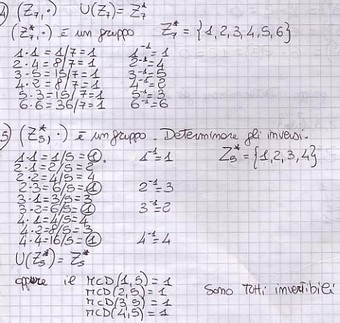 4) (Z7, ·) U(Z7) = Z7*
(Z7*, ·) è un gruppo Z7* = {1,2,3,4,5,6}
1·1 = 1/7 = 1 1⁻¹ = 1
2·4 = 8/7 = 1 2⁻¹ = 4
3·5 = 15/7 = 1 3⁻¹ = 5
4·2 = 8/7 = 1 4⁻¹ = 2
5·3 = 15/7 = 1 5⁻¹ = 3
6·6 = 36/7 = 1 6⁻¹ = 6
5) (Z5, ·) è un gruppo. Determinare gli inversi.
1·1 = 1/5 = 1. 1⁻¹ = 1 Z5* = {1,2,3,4}
2·1 = 2/5 = 2
2·2 = 4/5 = 4
2·3 = 6/5 = 1 2⁻¹ = 3
3·1 = 3/5 = 3
3·2 = 6/5 = 1 3⁻¹ = 2
4·1 = 4/5 = 4
4·2 = 8/5 = 3
4·4 = 16/5 = 1 4⁻¹ = 4
U(Z5*) = Z5*
oppure il MCD(1,5) = 1
MCD(2,5) = 1 Sono tutti invertibili
MCD(3,5) = 1
MCD(4,5) = 1